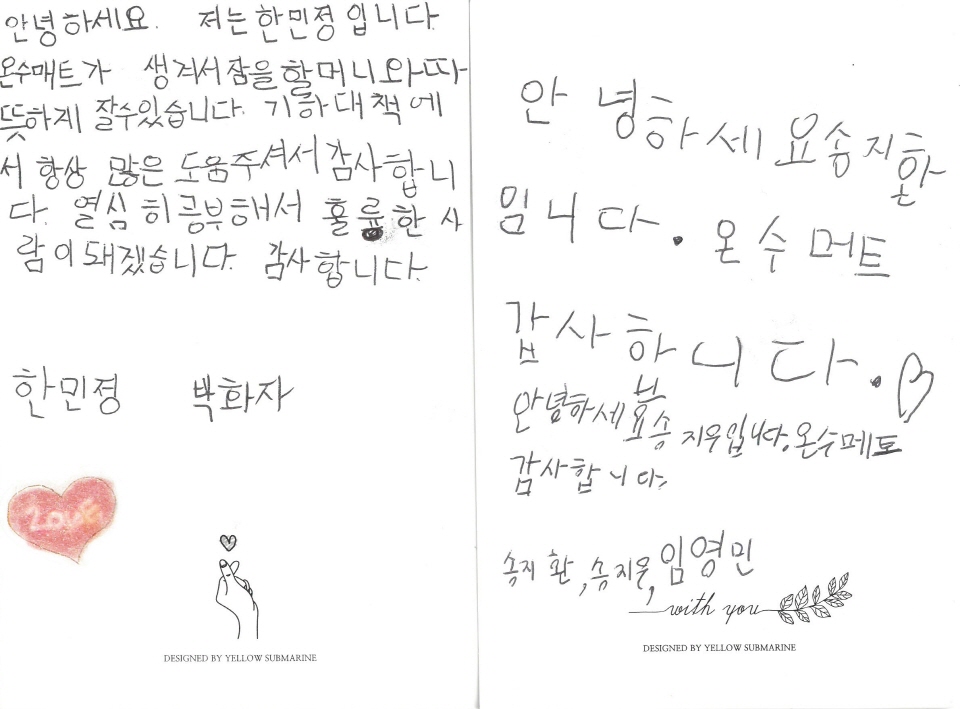 안녕하세요. 저는 한민정 입니다.
온수매트가 생겨서 잠을 할머니와 따
뜻하게 잘수있습니다. 기하대책에
서 항상 많은 도움주셔서 감사합니
다. 열심히 공부해서 훌륭한 사
람이 돼겠습니다. 감사합니다.
한민정 박화자
Love
DESIGNED BY YELLOW SUBMARINE
안녕하세요 송지환
입니다. 온수머트
감사합니다.
안녕하세요 송지우입니다. 온수메트
감사합니다.
송지환, 송지우, 임영민
with you
DESIGNED BY YELLOW SUBMARINE